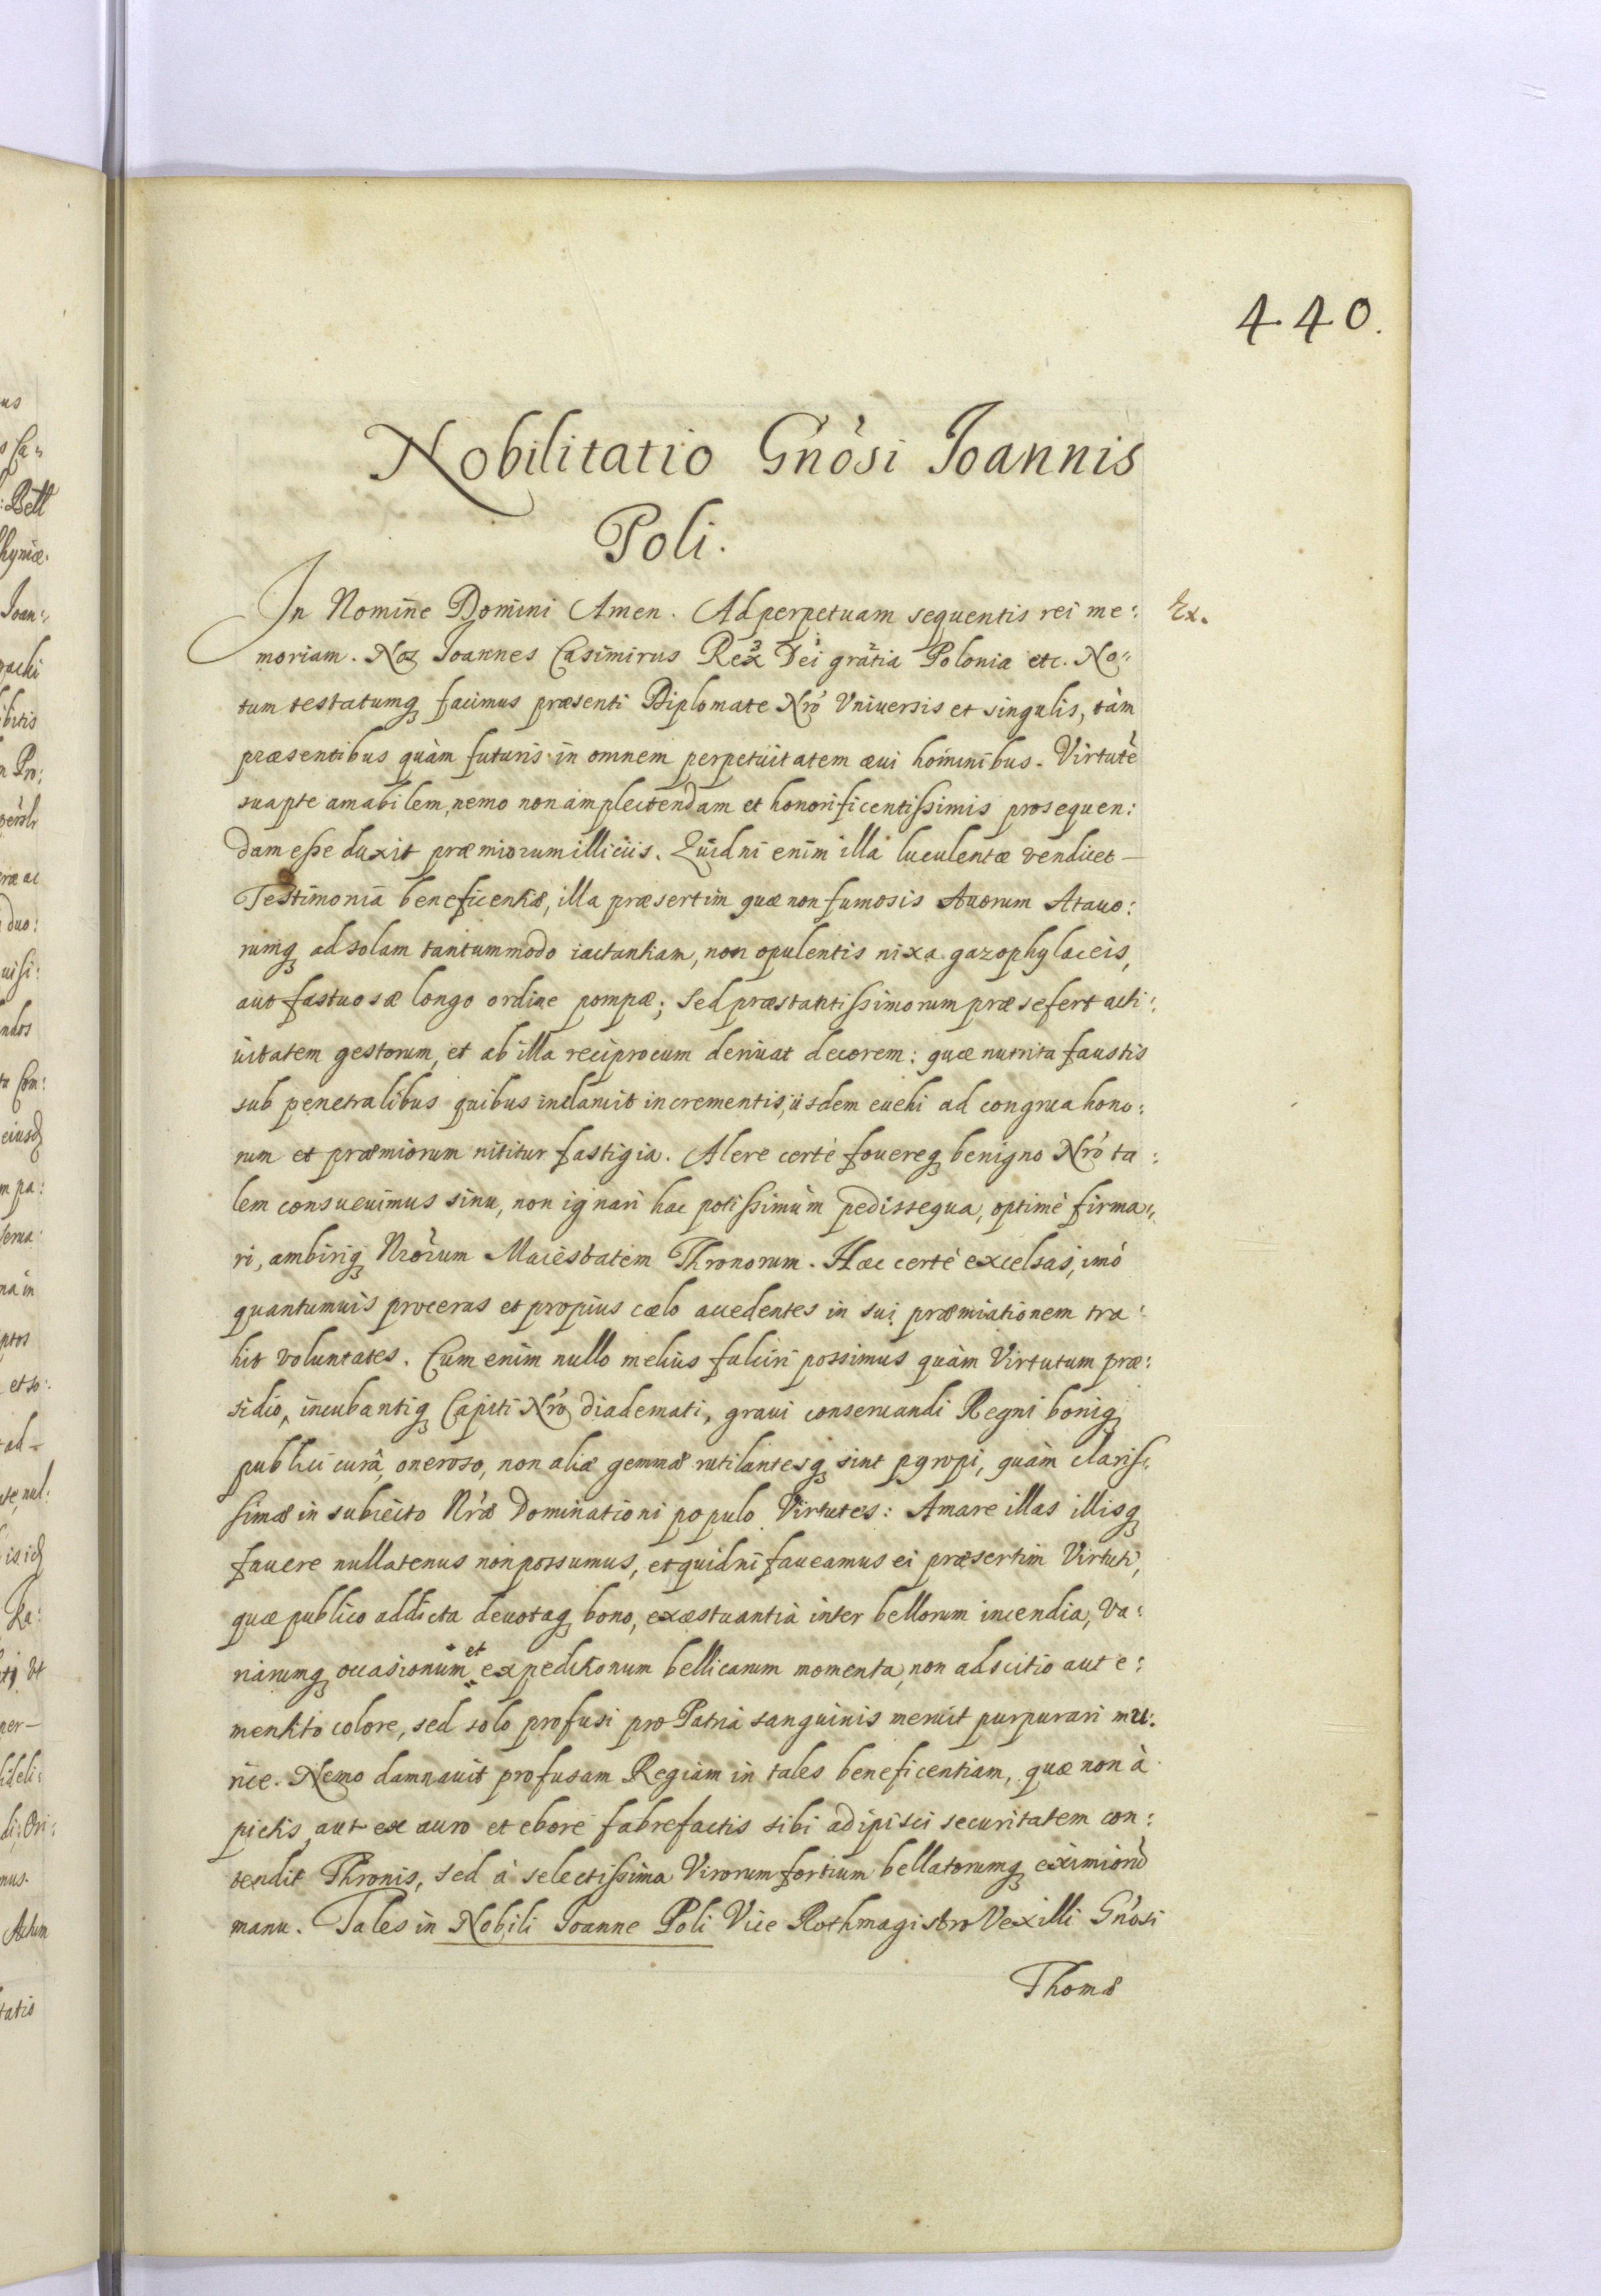 440.
Nobilitatio Gnòsi Joannis
Poli.
In Nomine Domini Amen. Ad perpetuam sequentis rei me: Ex.
moriam. Nos Joannes Casimirus Rex Dei gratia Poloniæ etc. No:
tum testatumq facimus præsenti Diplomate Nrô Vniuersis et singulis, tàm
præsentibus quàm futuris in omnem perpetuitatem æui hominibus. Virtutẽ
suapte amabilem, nemo non amplectendam et honorificentissimis prosequen:
dam esse duxit præmiorum illiciis. Quidni enim illa luculentæ vendicet
Testimonia beneficentiæ, illa præsertim quæ non fumosis Auorum Atauo:
rumq ad solam tantummodo iactantiam, non opulentis nixa gazophylaceis,
aut fastuosæ longo ordine pompæ; Sed præstantissimorum præ se fert acti:
uitatem gestorum, et ab illa reciprocum deriuat decorem: quæ nutrita faustis
sub penetralibus quibus inclaruit incrementis, iisdem euehi ad congrua hono:
rum et præmiorum nititur fastigia. Alere certè fouereq benigno Nrô ta:
lem consueuimus sinu, non ignari hac potissimùm pedissequa, optimè firma:
ri, ambiriq Nrôrum Maiestatem Thronorum. Hæc certè excelsas, imò
quantumuis proceras et propius cælo accedentes in sui præmiationem tra:
hit voluntates. Cum enim nullo melius fulciri possimus quàm Virtutum præ:
sidio, incubantiq Capiti Nrô diademati, graui conseruandi Regni boniq
publici curâ, oneroso, non aliæ gemmæ rutilantesq sint pyropi, quàm claris:
simæ in subiecto Nræ Dominationi populo Virtutes: Amare illas illisq
fauere nullatenus non possumus, et quidni faueamus ei præsertim Virtuti,
quæ publico addicta deuotaq bono, exæstuantia inter bellorum incendia, va:
riarumq occasionum et expeditionum bellicarum momenta, non adscitio aut e:
mentito colore, sed solo profusi pro Patria sanguinis meruit purpurari mu:
rice. Nemo damnauit profusam Regiam in tales beneficentiam, quæ non à
pictis aut ex auro et ebore fabrefactis sibi adipisci securitatem con:
tendit Thronis, sed à selectissima Virorum fortium bellatorumq eximiorũ
manu. Tales in Nobili Joanne Poli Vice Rothmagistro Vexilli Gnòsi
Thomæ